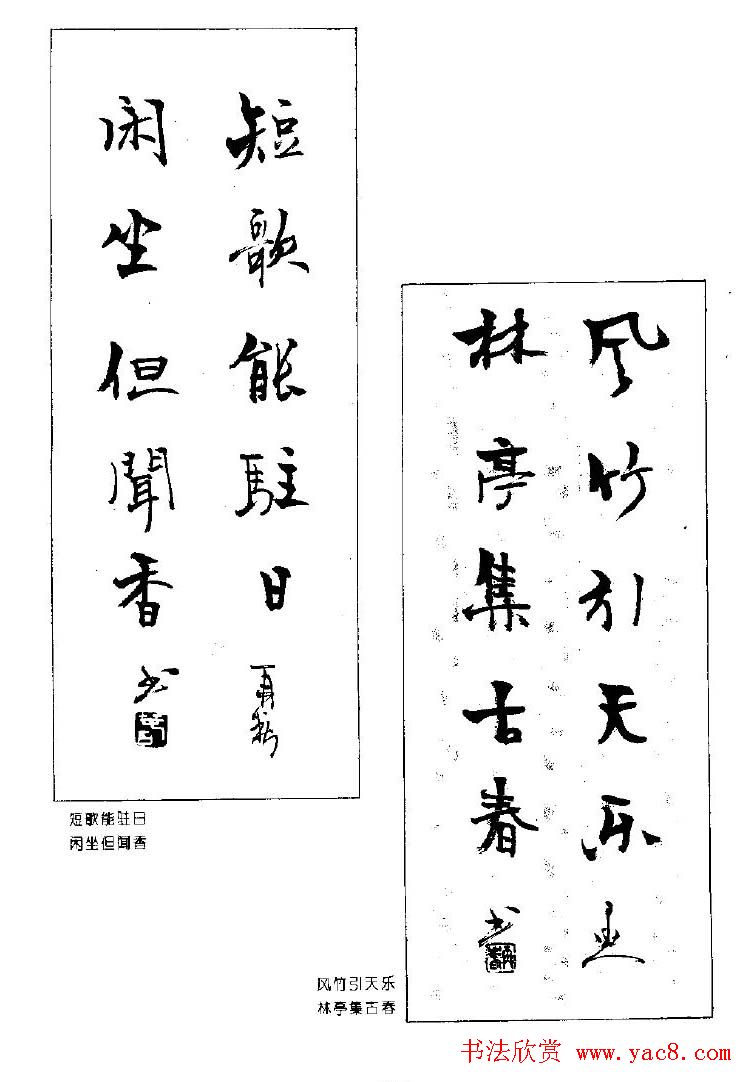 短歌能駐日
闲坐但聞香
书
短歌能驻日
闲坐但闻香
风竹引天乐
林亭集古春
书
风竹引天乐
林亭集古春
书法欣赏 www.yac8.com